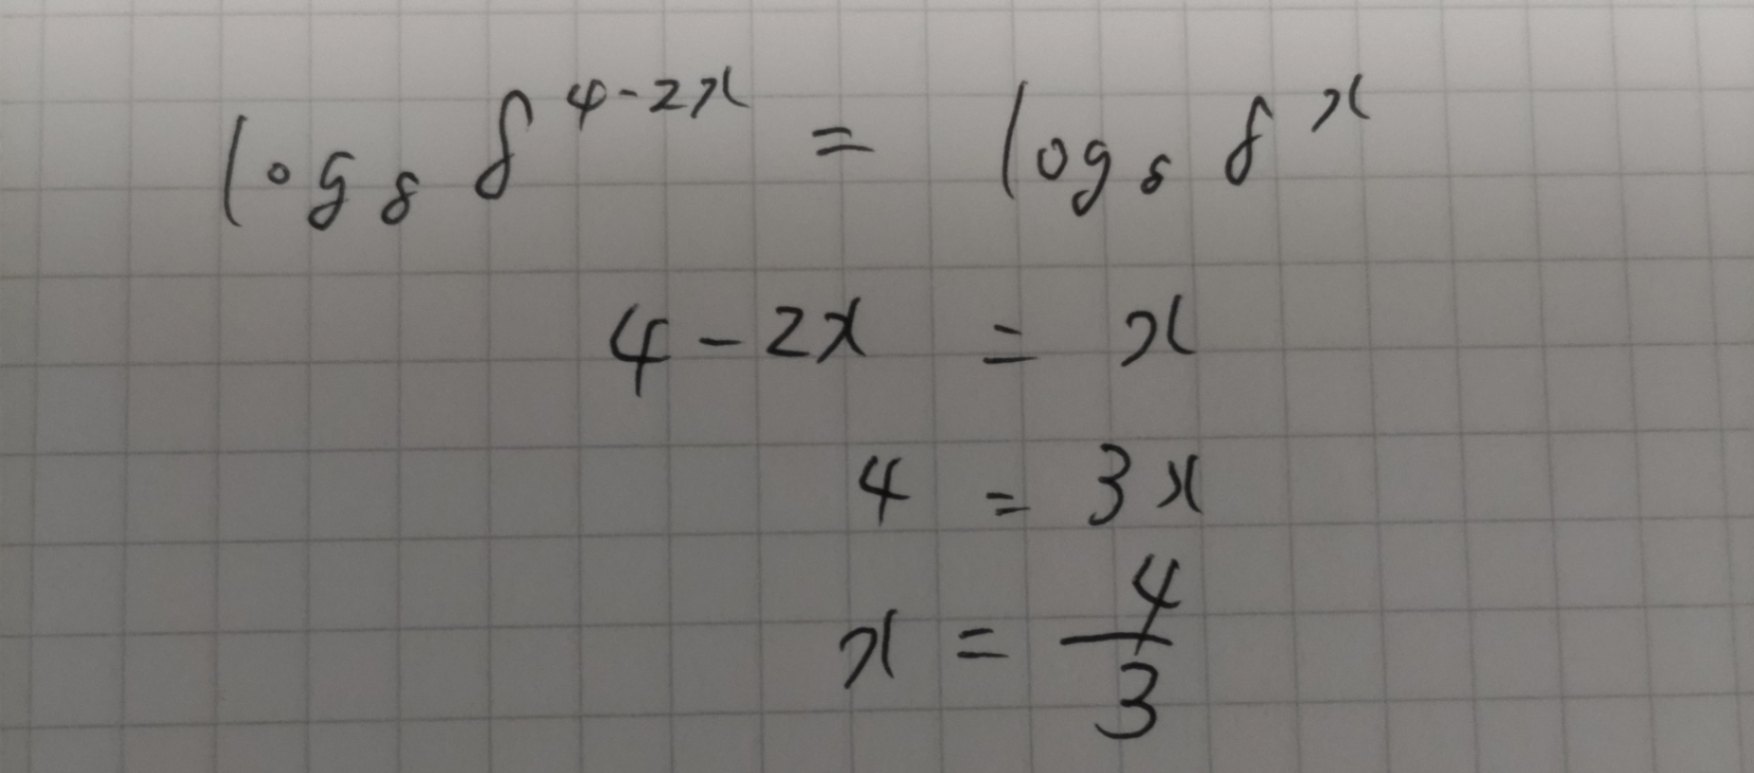 log₈ 8^(4-2x) = log₈ 8^x
4 - 2x = x
4 = 3x
x = 4/3